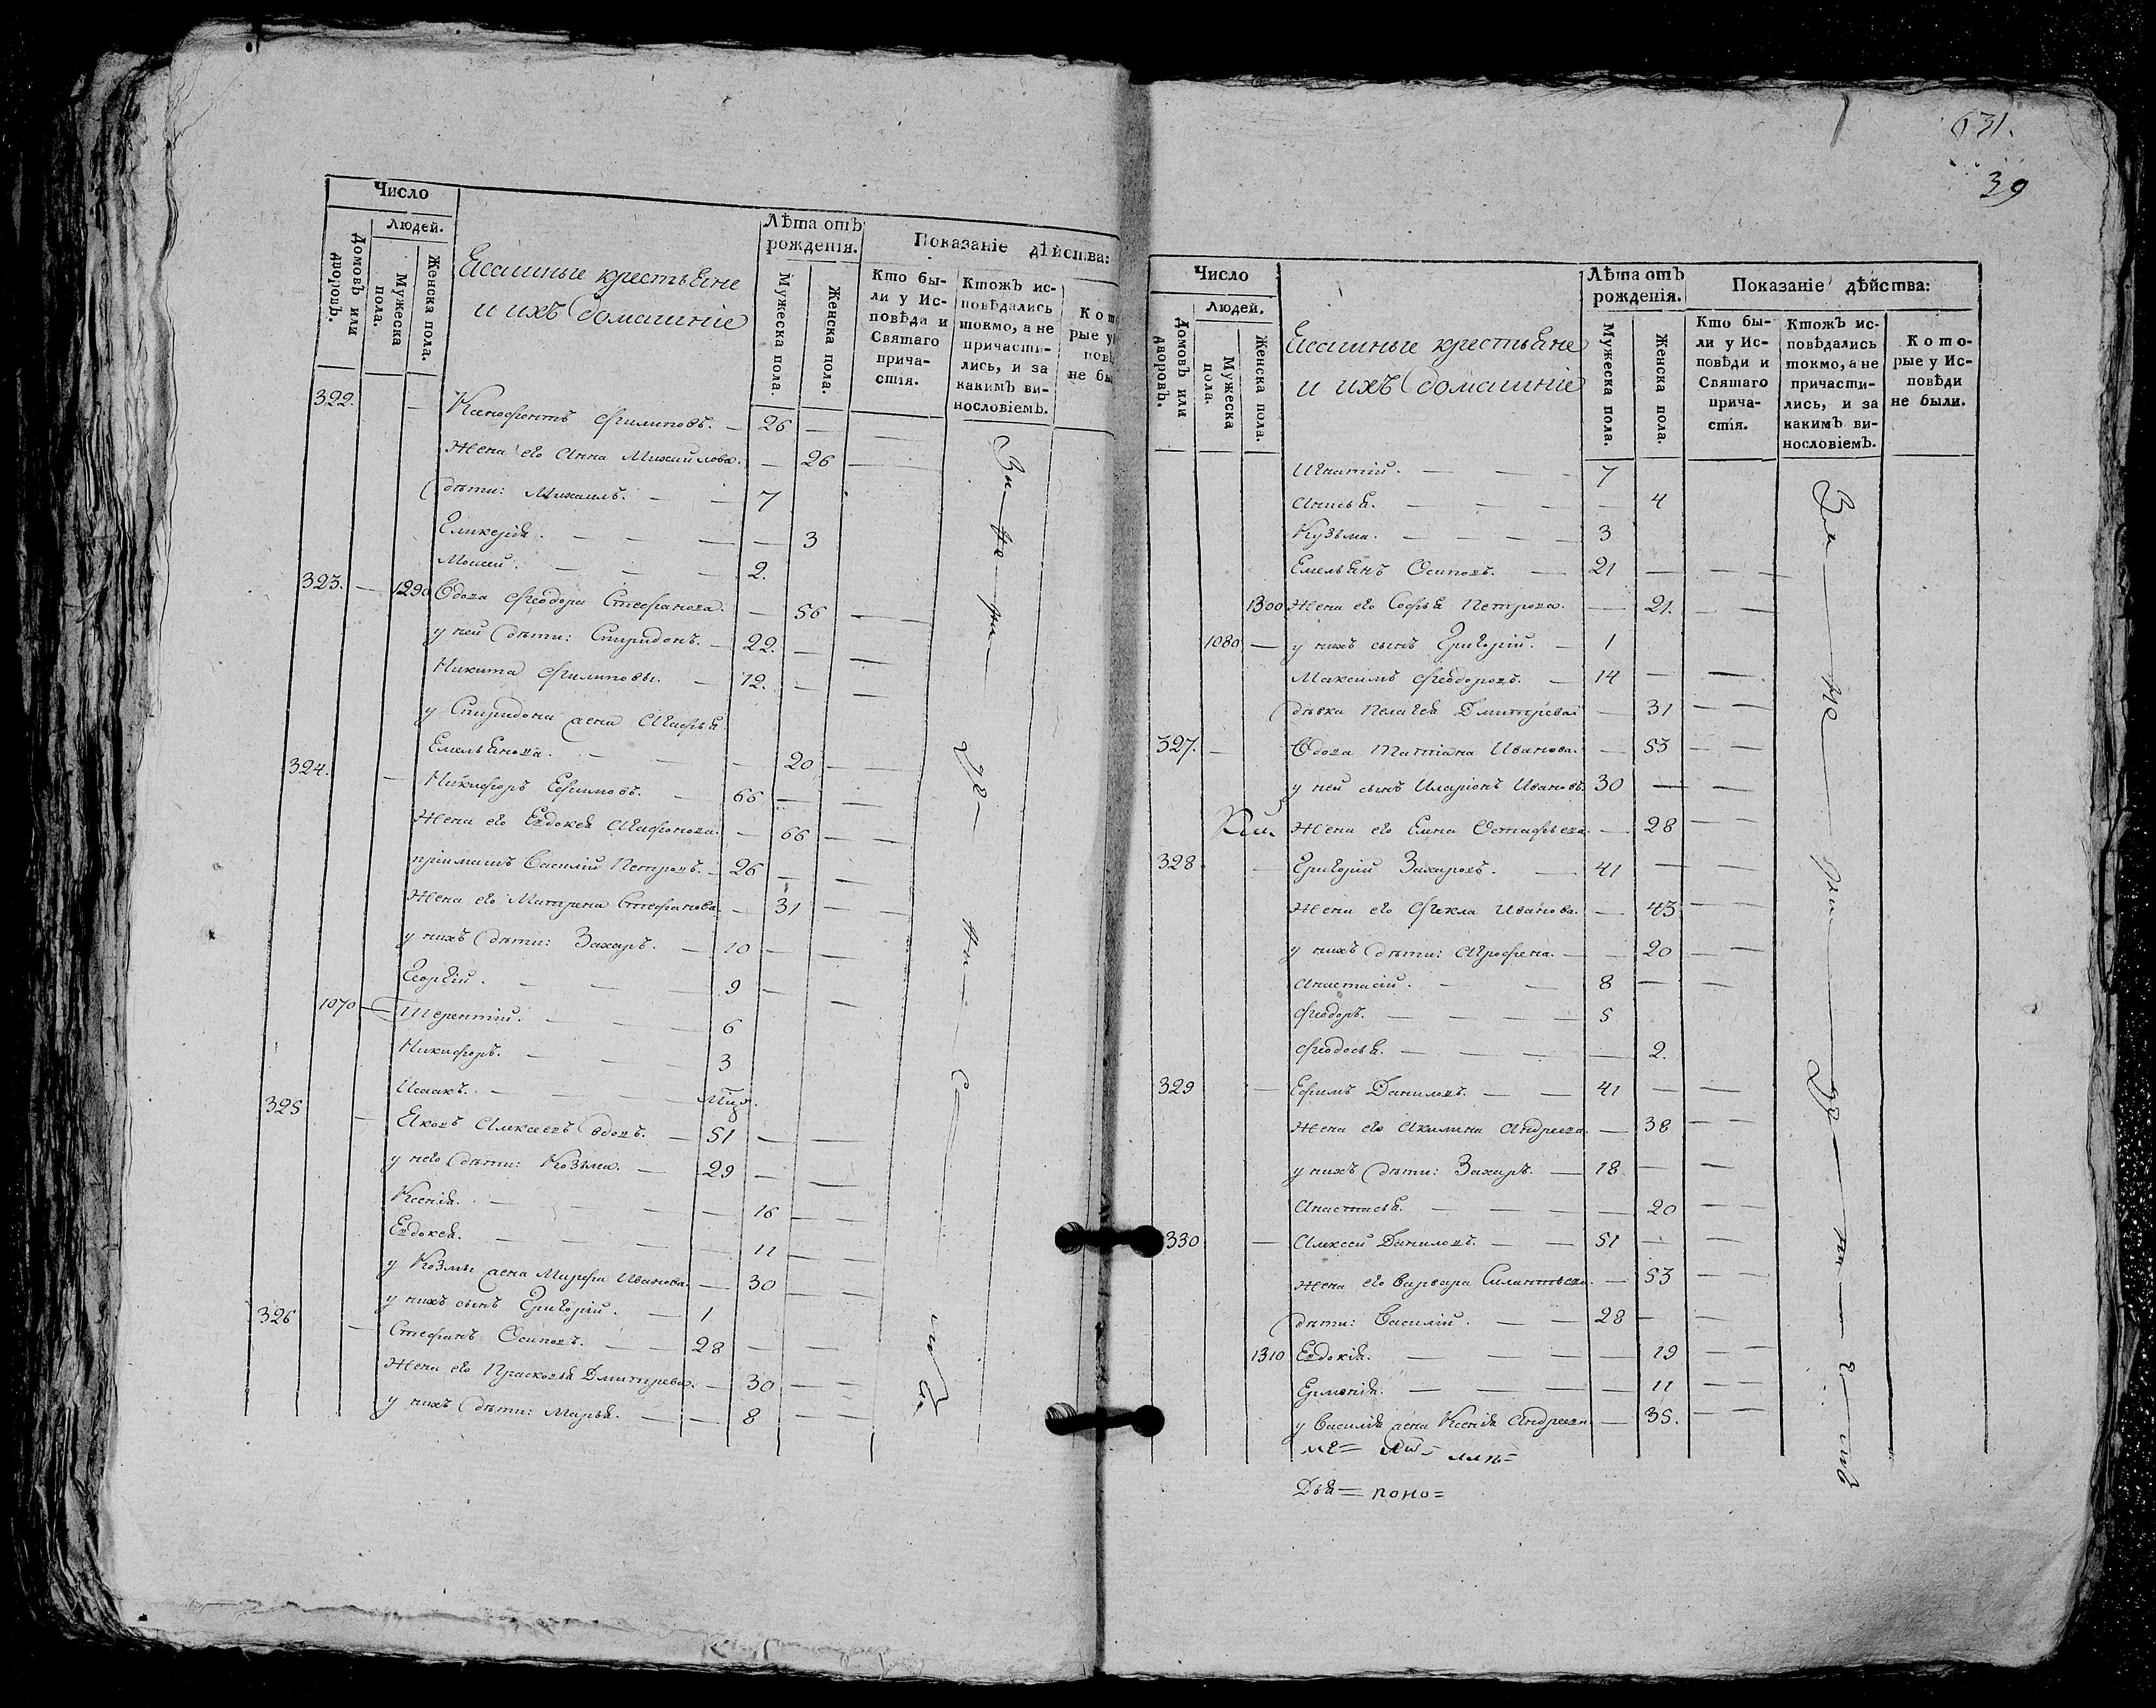 Число
Людей.
Домовъ или дворовъ.
Мужеска пола.
Женска пола.
Ясашные крестьяне
и ихъ домашніе
Лѣта отъ рожденія.
Мужеска пола.
Женска пола.
Показаніе дѣйства:
Кто были у Исповѣди и Святаго причастія.
Ктожъ исповѣдались токмо, а не причастились, и за какимъ винословіемъ.
322. — Ксенофонтъ Филиповъ. — 26 —
Жена его Анна Михайлова. — 26
дѣти: Михаилъ. — 7
Гликерія. — 3
Моисей. — 2.
323. — 1290 Вдова Феодора Стефанова. — 56
у ней дѣти: Спиридонъ. — 22. —
Никита Филиповы. — 12. —
у Спиридона жена Агафья
Емельянова. — 20
324. — Никифоръ Ефимовъ. — 66 —
Жена его Евдокея Агафонова. — 66
пріимашъ Василій Петровъ. — 26 —
Жена его Матрена Стефанова. — 31
у нихъ дѣти: Захаръ. — 10 —
Георгій. — 9 —
1070 — Терентій. — 6
Никифоръ. — 3
Исаакъ. —
325 — Яковъ Алексеевъ вдовъ. — 51 —
у него дѣти: Козма. — 29 —
Ксенія. — 16
Евдокея. — 11
у Козмы жена Марфа Иванова. — 30
у нихъ сынъ Григорій. — 1
326 — Стефанъ Осиповъ. — 28 —
Жена его Прасковья Дмитрева. — 30
у нихъ дѣти: Марья. — 8
631.
39
Число
Людей.
Домовъ или дворовъ.
Мужеска пола.
Женска пола.
Ясашные крестьяне
и ихъ домашніе
Лѣта отъ рожденія.
Мужеска пола.
Женска пола.
Показаніе дѣйства:
Кто были у Исповѣди и Святаго причастія.
Ктожъ исповѣдались токмо, а не причастились, и за какимъ винословіемъ.
Которые у Исповѣди не были.
Игнатій. — 7
Анисья. — 4
Кузьма. — 3
Емельянъ Осиповъ. — 21 —
1300 Жена его Софья Петрова. — 21.
1080 — у нихъ сынъ Григорій. — 1
Максимъ Феодоровъ. — 14 —
дѣвка Пелагея Дмитрева — 31
327. — Вдова Татіана Иванова. — 53
у ней сынъ Иларіонъ Ивановъ. 30 —
Жена его Елена Остафьева. — 28
328 — Григорій Захаровъ. — 41 —
Жена его Фекла Иванова. — 43
у нихъ дѣти: Агрофена. — 20
Анастасій. — 8 —
Феодоръ. — 5
Феодосья. — 2.
329 — Ефимъ Даниловъ. — 41 —
Жена его Акилина Андреева. — 38
у нихъ дѣти: Захаръ. — 18 —
Анастасья. — 20
330 — Алексей Даниловъ. — 51 —
Жена его Варвара Силантьева. — 53
дѣти: Василій. — 28 —
1310 Евдокія. — 19
Ермонія. — 11
у Василія жена Ксенія Андреева — 35.
Дья= поно=